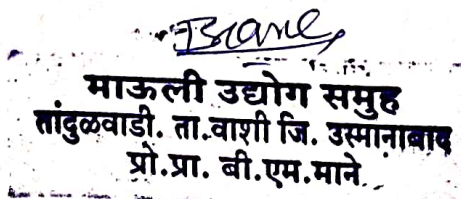 माऊली उद्योग समुह
तांदुळवाडी. ता.वाशी जि. उस्मानाबाद
प्रो.प्रा. बी.एम.माने.